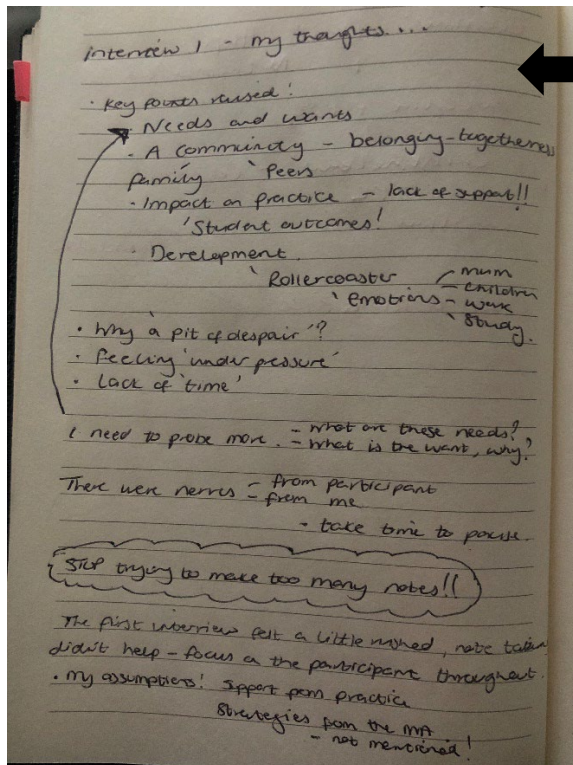 interview 1 - my thoughts...
· Key points raised!
· Needs and wants
· A community - belonging - togetherness
family ' Peers
· Impact on practice - lack of support!!
' Student outcomes!
· Development
' Rollercoaster - mum
' emotions - children
- work
' Study.
· Why 'a pit of despair'?
· Feeling 'under pressure'
· Lack of 'time'
I need to probe more. - What are these needs?
- What is the want, why?
There were nerves - from participant
- from me
- take time to pause.
STOP trying to make too many notes!!
The first interview felt a little rushed, note taking
didn't help - focus on the participant throughout.
· My assumptions! Support from practice
Strategies from the MA
- not mentioned!